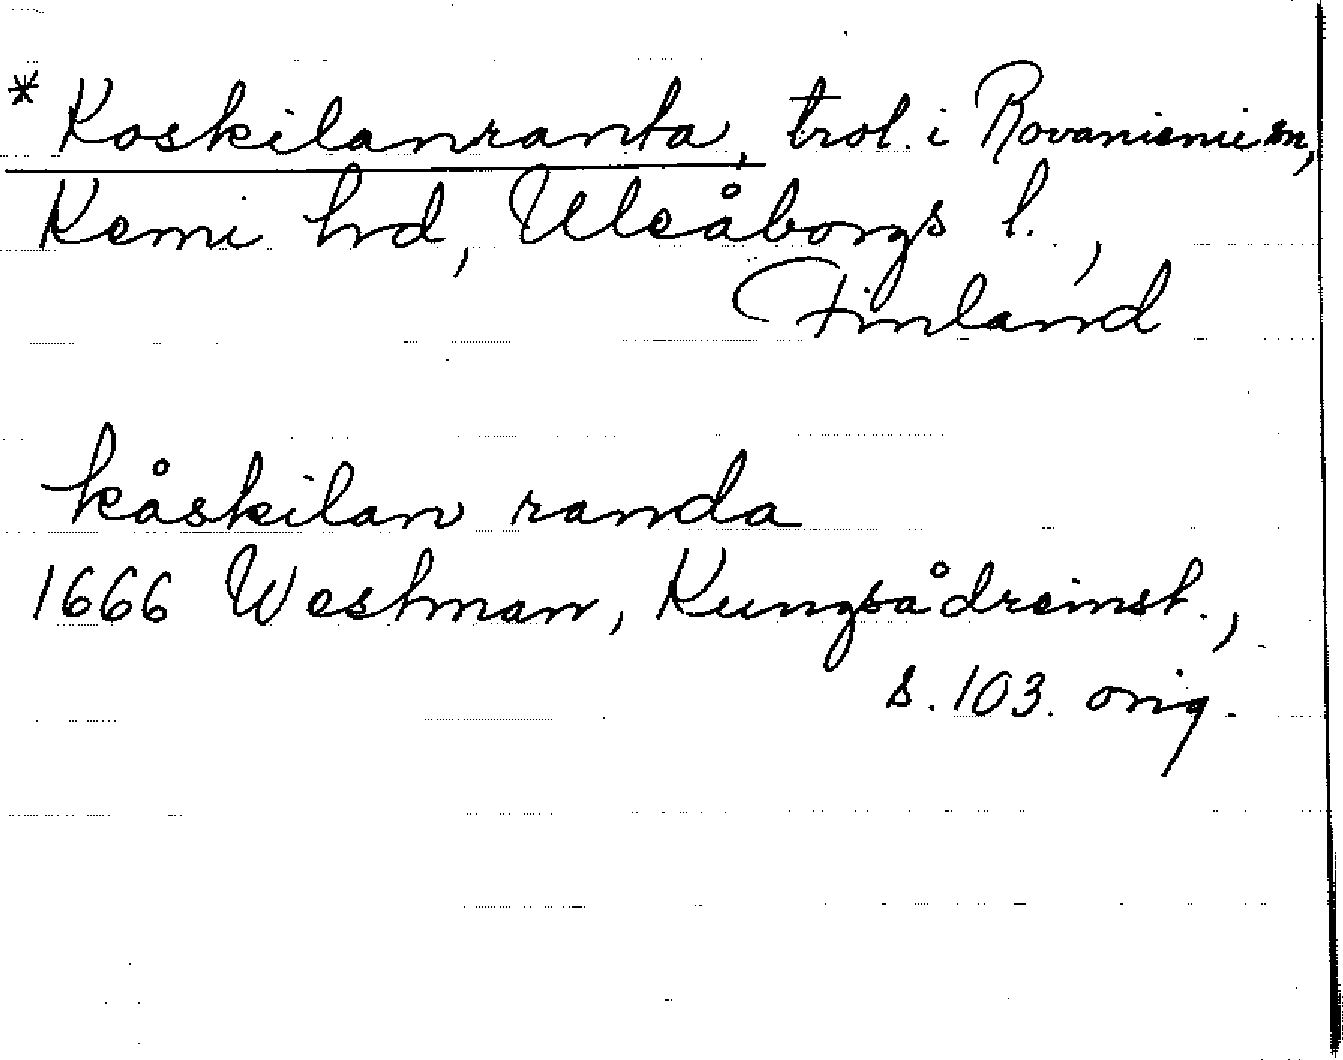 * Koskilanranta, trol. i Rovaniemi sn,
Kemi hrd, Uleåborgs l.,
Finland
kåskilan randa
1666 Westman, Kungsådreinst.,
s. 103. orig.